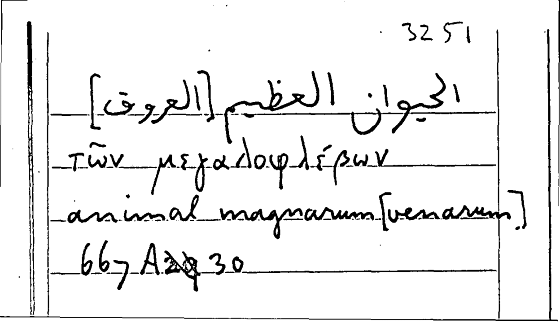 3251
الحيوان العظيم [العروق]
τῶν μεγαλοφλέβων
animal magnarum [venarum]
667 A 30